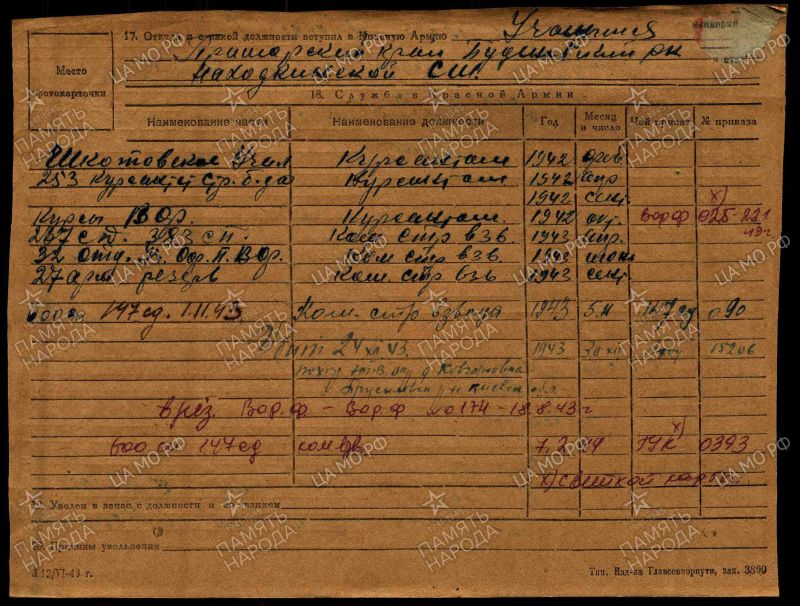 17. Откуда и с какой должности вступил в Красную Армию Учащийся
Приморский край Буденовский РК
Находкинской СШ.
Место
фотокарточки
18. Служба в Красной Армии
Наименование части Наименование должности Год Месяц и число Чей приказ № приказа
Шкотовское Учил Курсантом 1942 фев
253 Курсантск стр. б-да Курсантом 1942 апр
1942 сент. х)
Курсы ВФ. Курсантом. 1942 окт. Вор ф 025-221
43 г
Ком стр взв. 1943 апр.
32 отд. Ком стр взв. 1943 июнь
27 арм резерв Ком. стр взв 1943 сент
600 сп 147 сд. 1.11.43 Ком. стр взвода 1943 5.11 147 сд 090
24 XII 43. 1943 1520в
Брусиловск р-н Киевск обл
в рез. Вор. ф - Вор ф № 0174 - 18.8.43 г
600 сп 147 сд ком взв. ГУК х) 0393
х) с личной карт.
19. Уволен в запас с должности и со званием
20. Причины увольнения
Л 12/VI-43 г. Тип. Изд-ва Главсевморпути, зак. 3890
ЦА МО РФ
ПАМЯТЬ НАРОДА